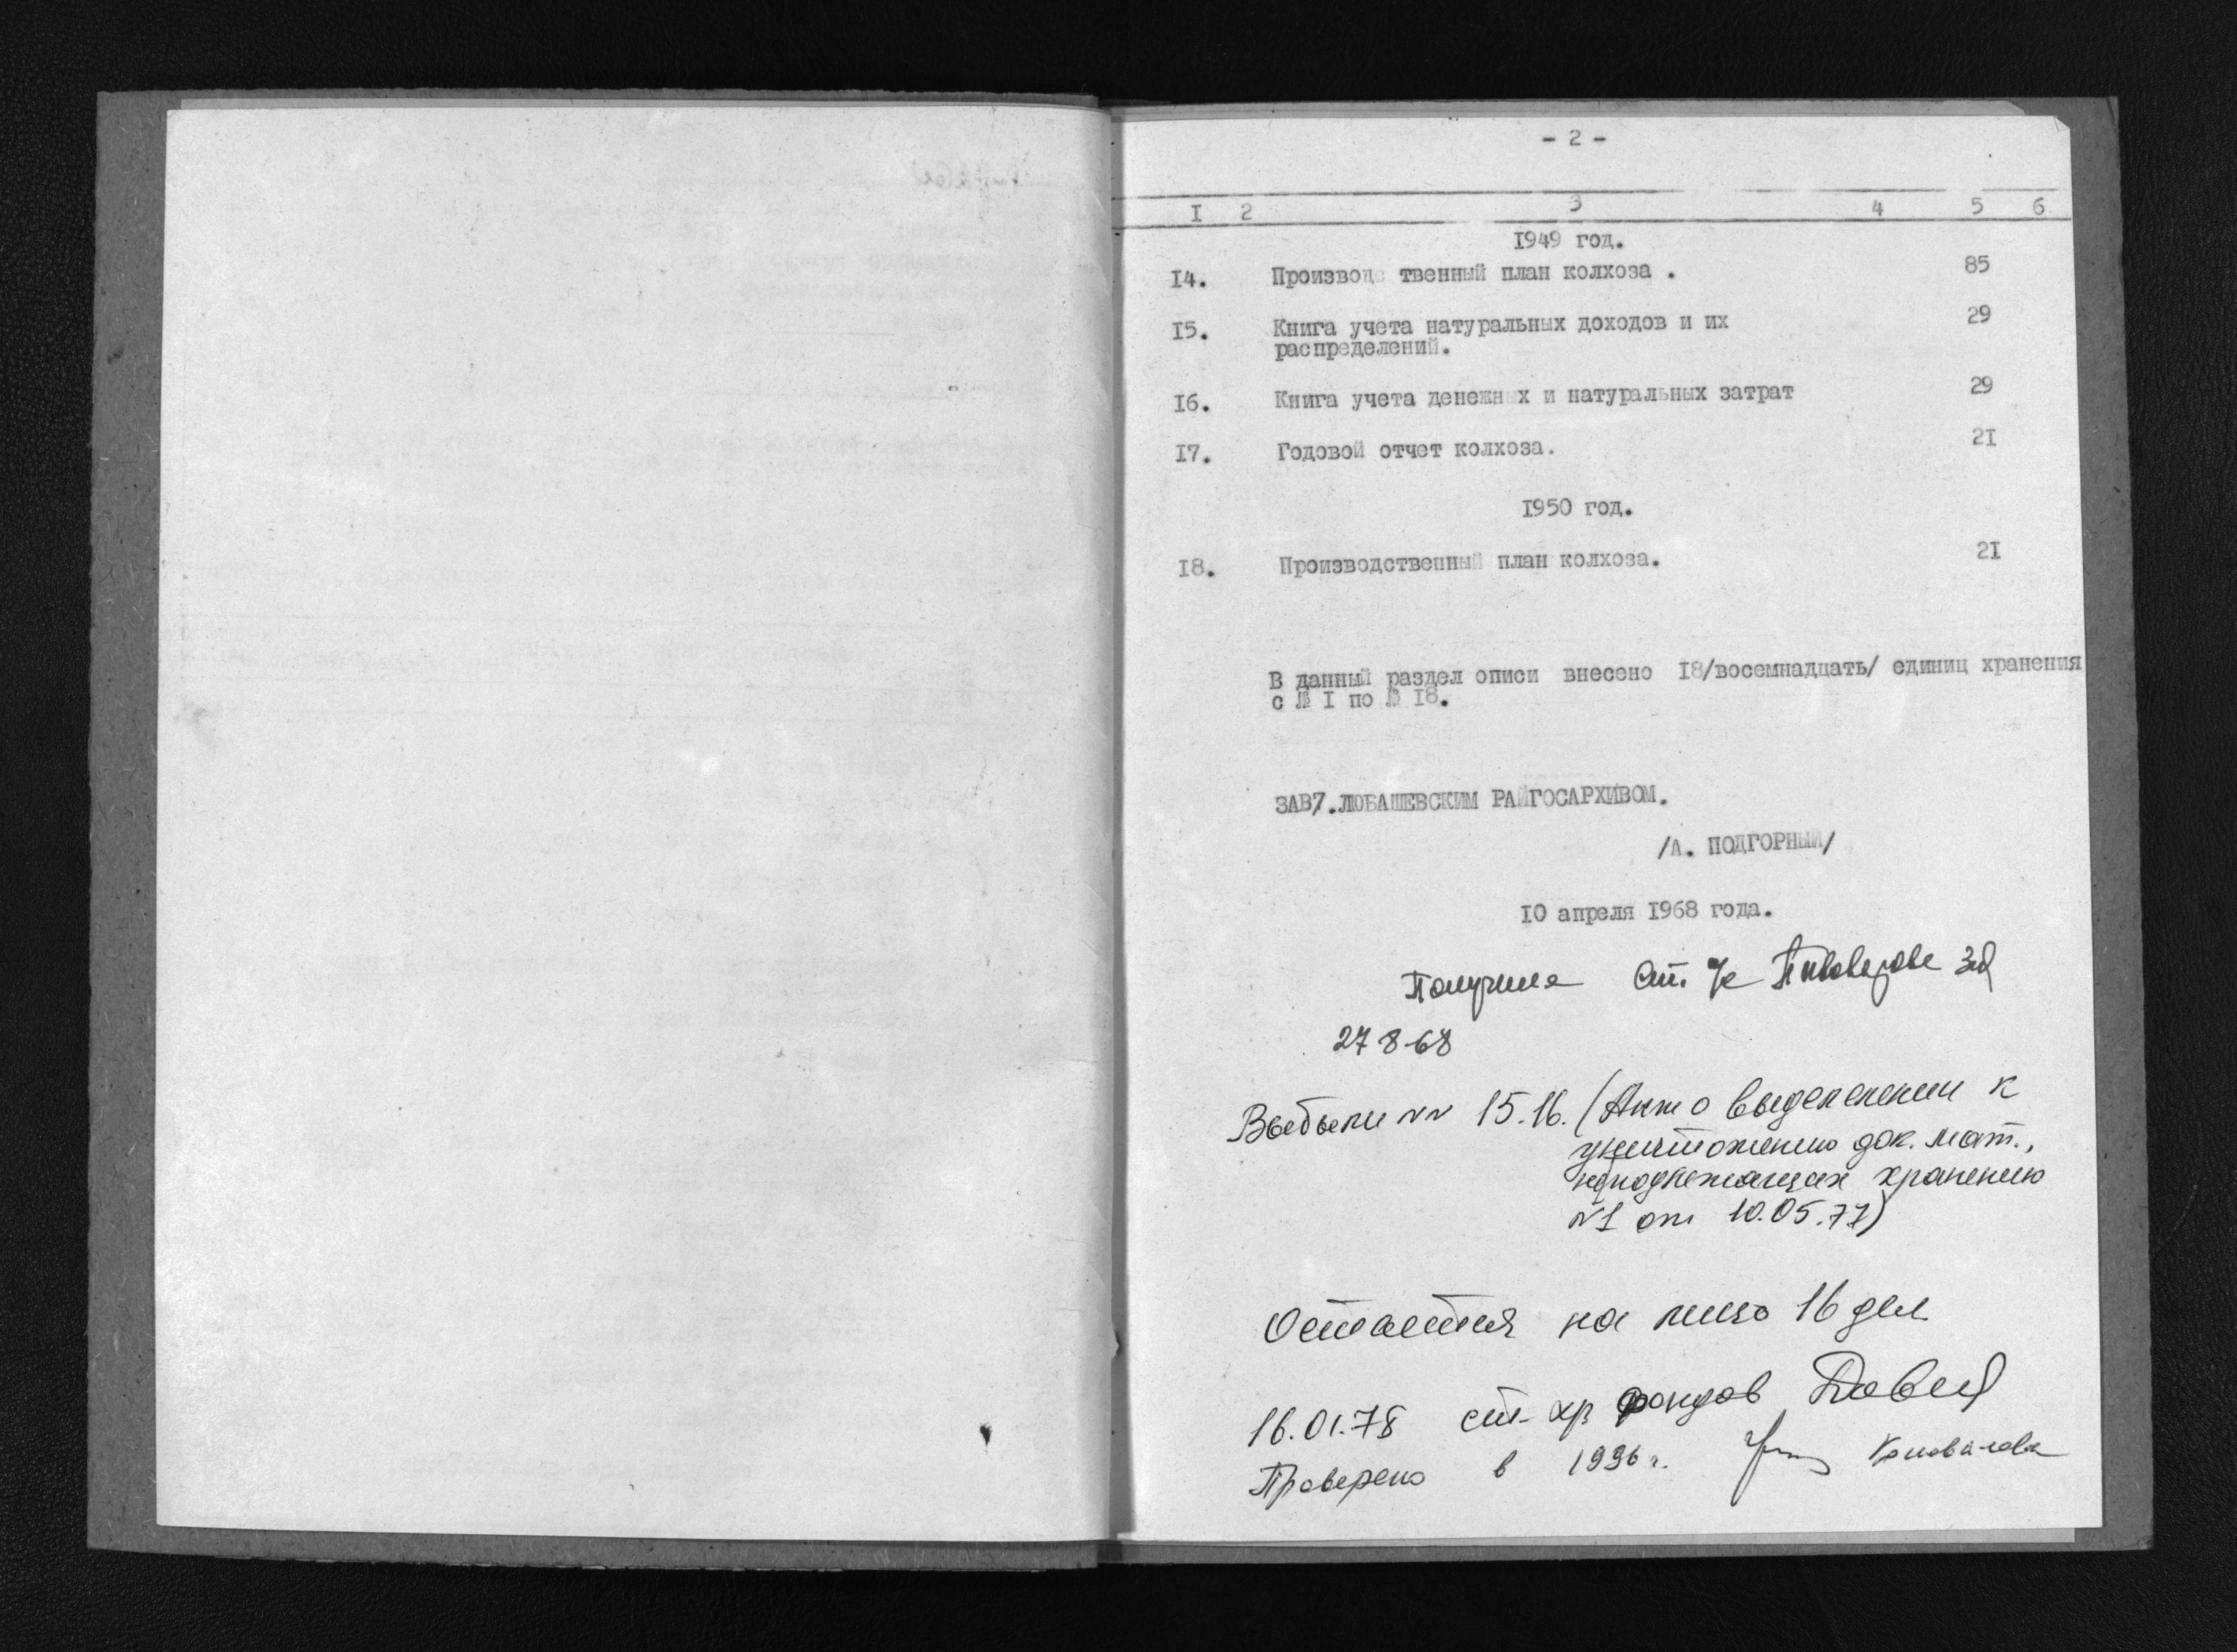 - 2 -
I 2 3 4 5 6
1949 год.
14. Производственный план колхоза . 85
15. Книга учета натуральных доходов и их 29
распределений.
16. Книга учета денежных и натуральных затрат 29
17. Годовой отчет колхоза. 21
1950 год.
18. Производственный план колхоза. 21
В данный раздел описи внесено 18/восемнадцать/ единиц хранения
с № I по № 18.
ЗАВ7.ЛЮБАШЕВСКИМ РАЙГОСАРХИВОМ.
/А. ПОДГОРНЫЙ/
10 апреля 1968 года.
Получила Ст.
27 8-68
Выбыли NN 15.16. (Акт о выделении к
уничтожению док. мат.,
неподлежащих хранению
N1 от 10.05.77)
Остается на лицо 16 дел
16.01.78 ст. хр фондов
Проверено в 1996 г. Коновалова